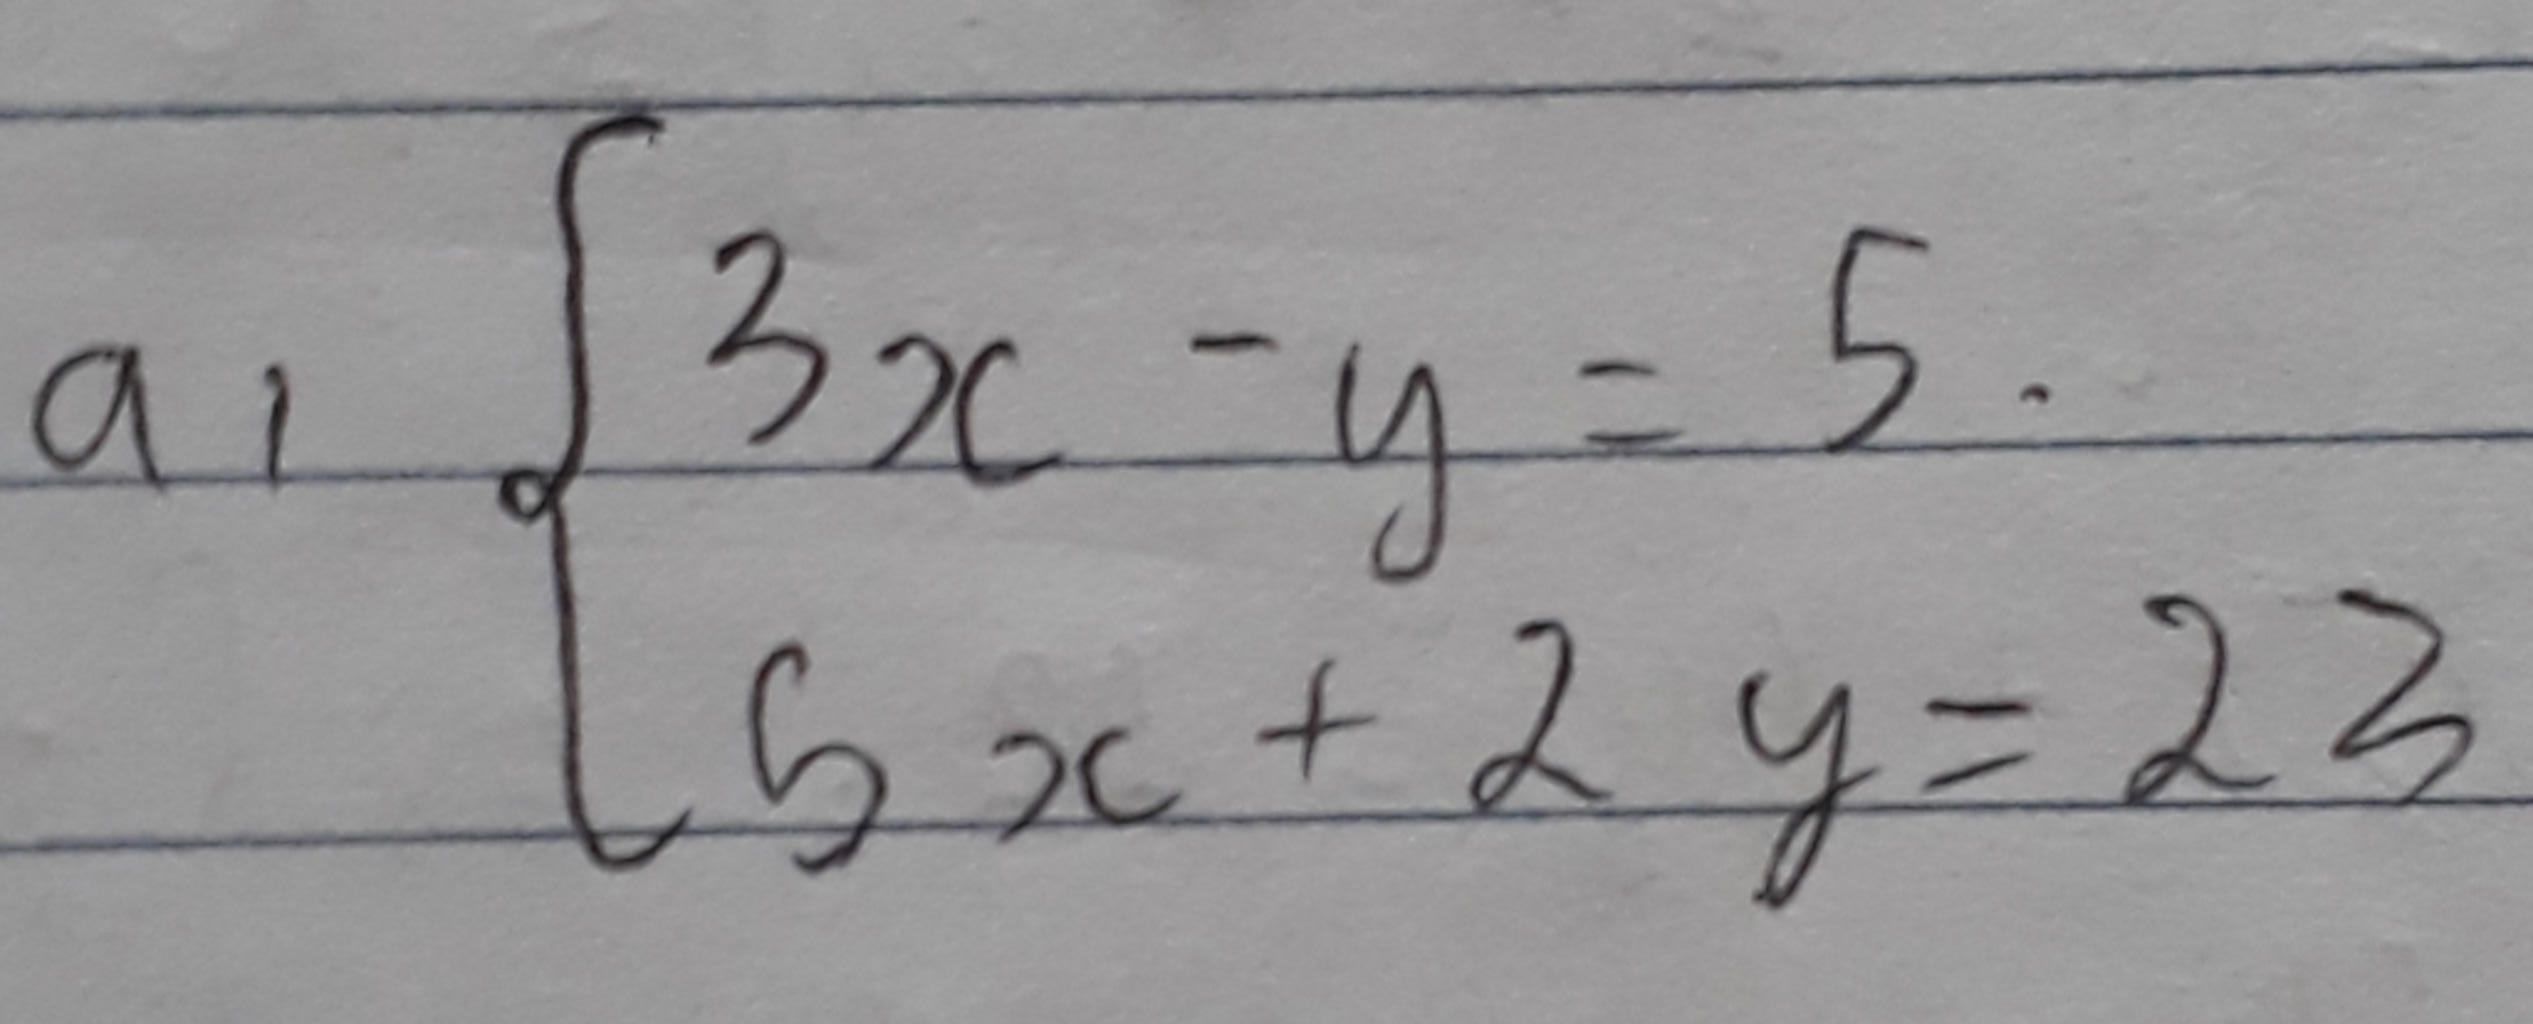 a, { 3x - y = 5.
5x + 2y = 23